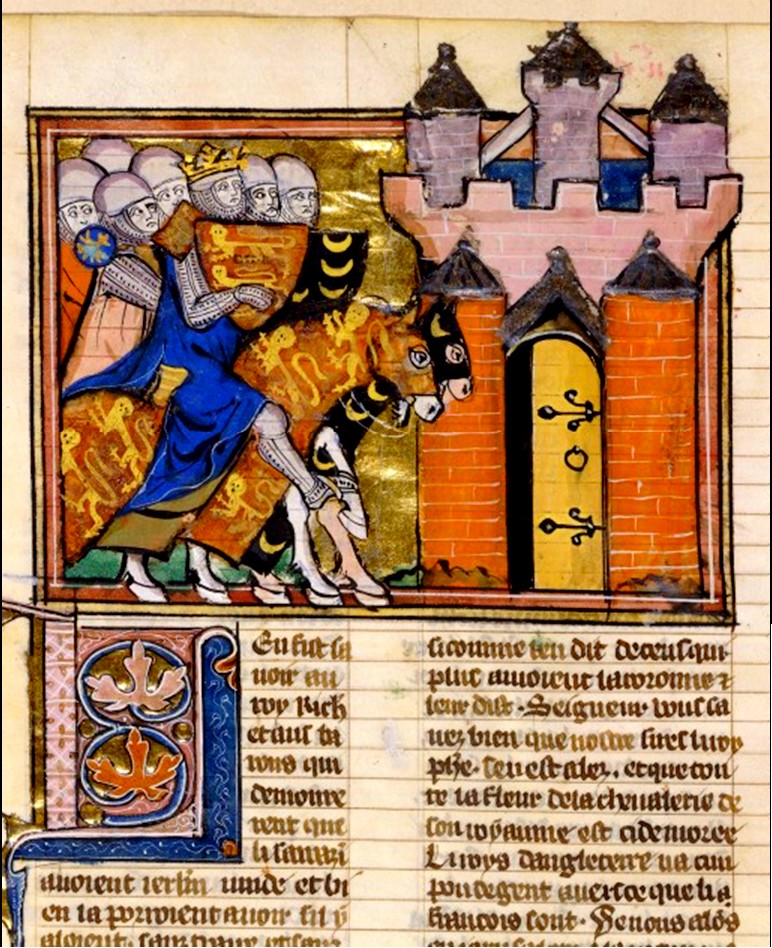 En fist sa
uoir au
roy Rich
et aus ba
rons qui
demoure
rent que
li sarrazi
auoient ierlm uuide et bi
en la porroient auoir sil y
aloient. sanz
si comme len dit de ceus qui
plus auoient la &
leur dist. Seigneur vous sa
uez bien que nostre sires li roy
phe. sen est alez. et que tou
te la fleur de la cheualerie de
son royaume est ci demoree
Li roys dangleterre na
pou de gent auers ce que li
francois sont. Se nous alos